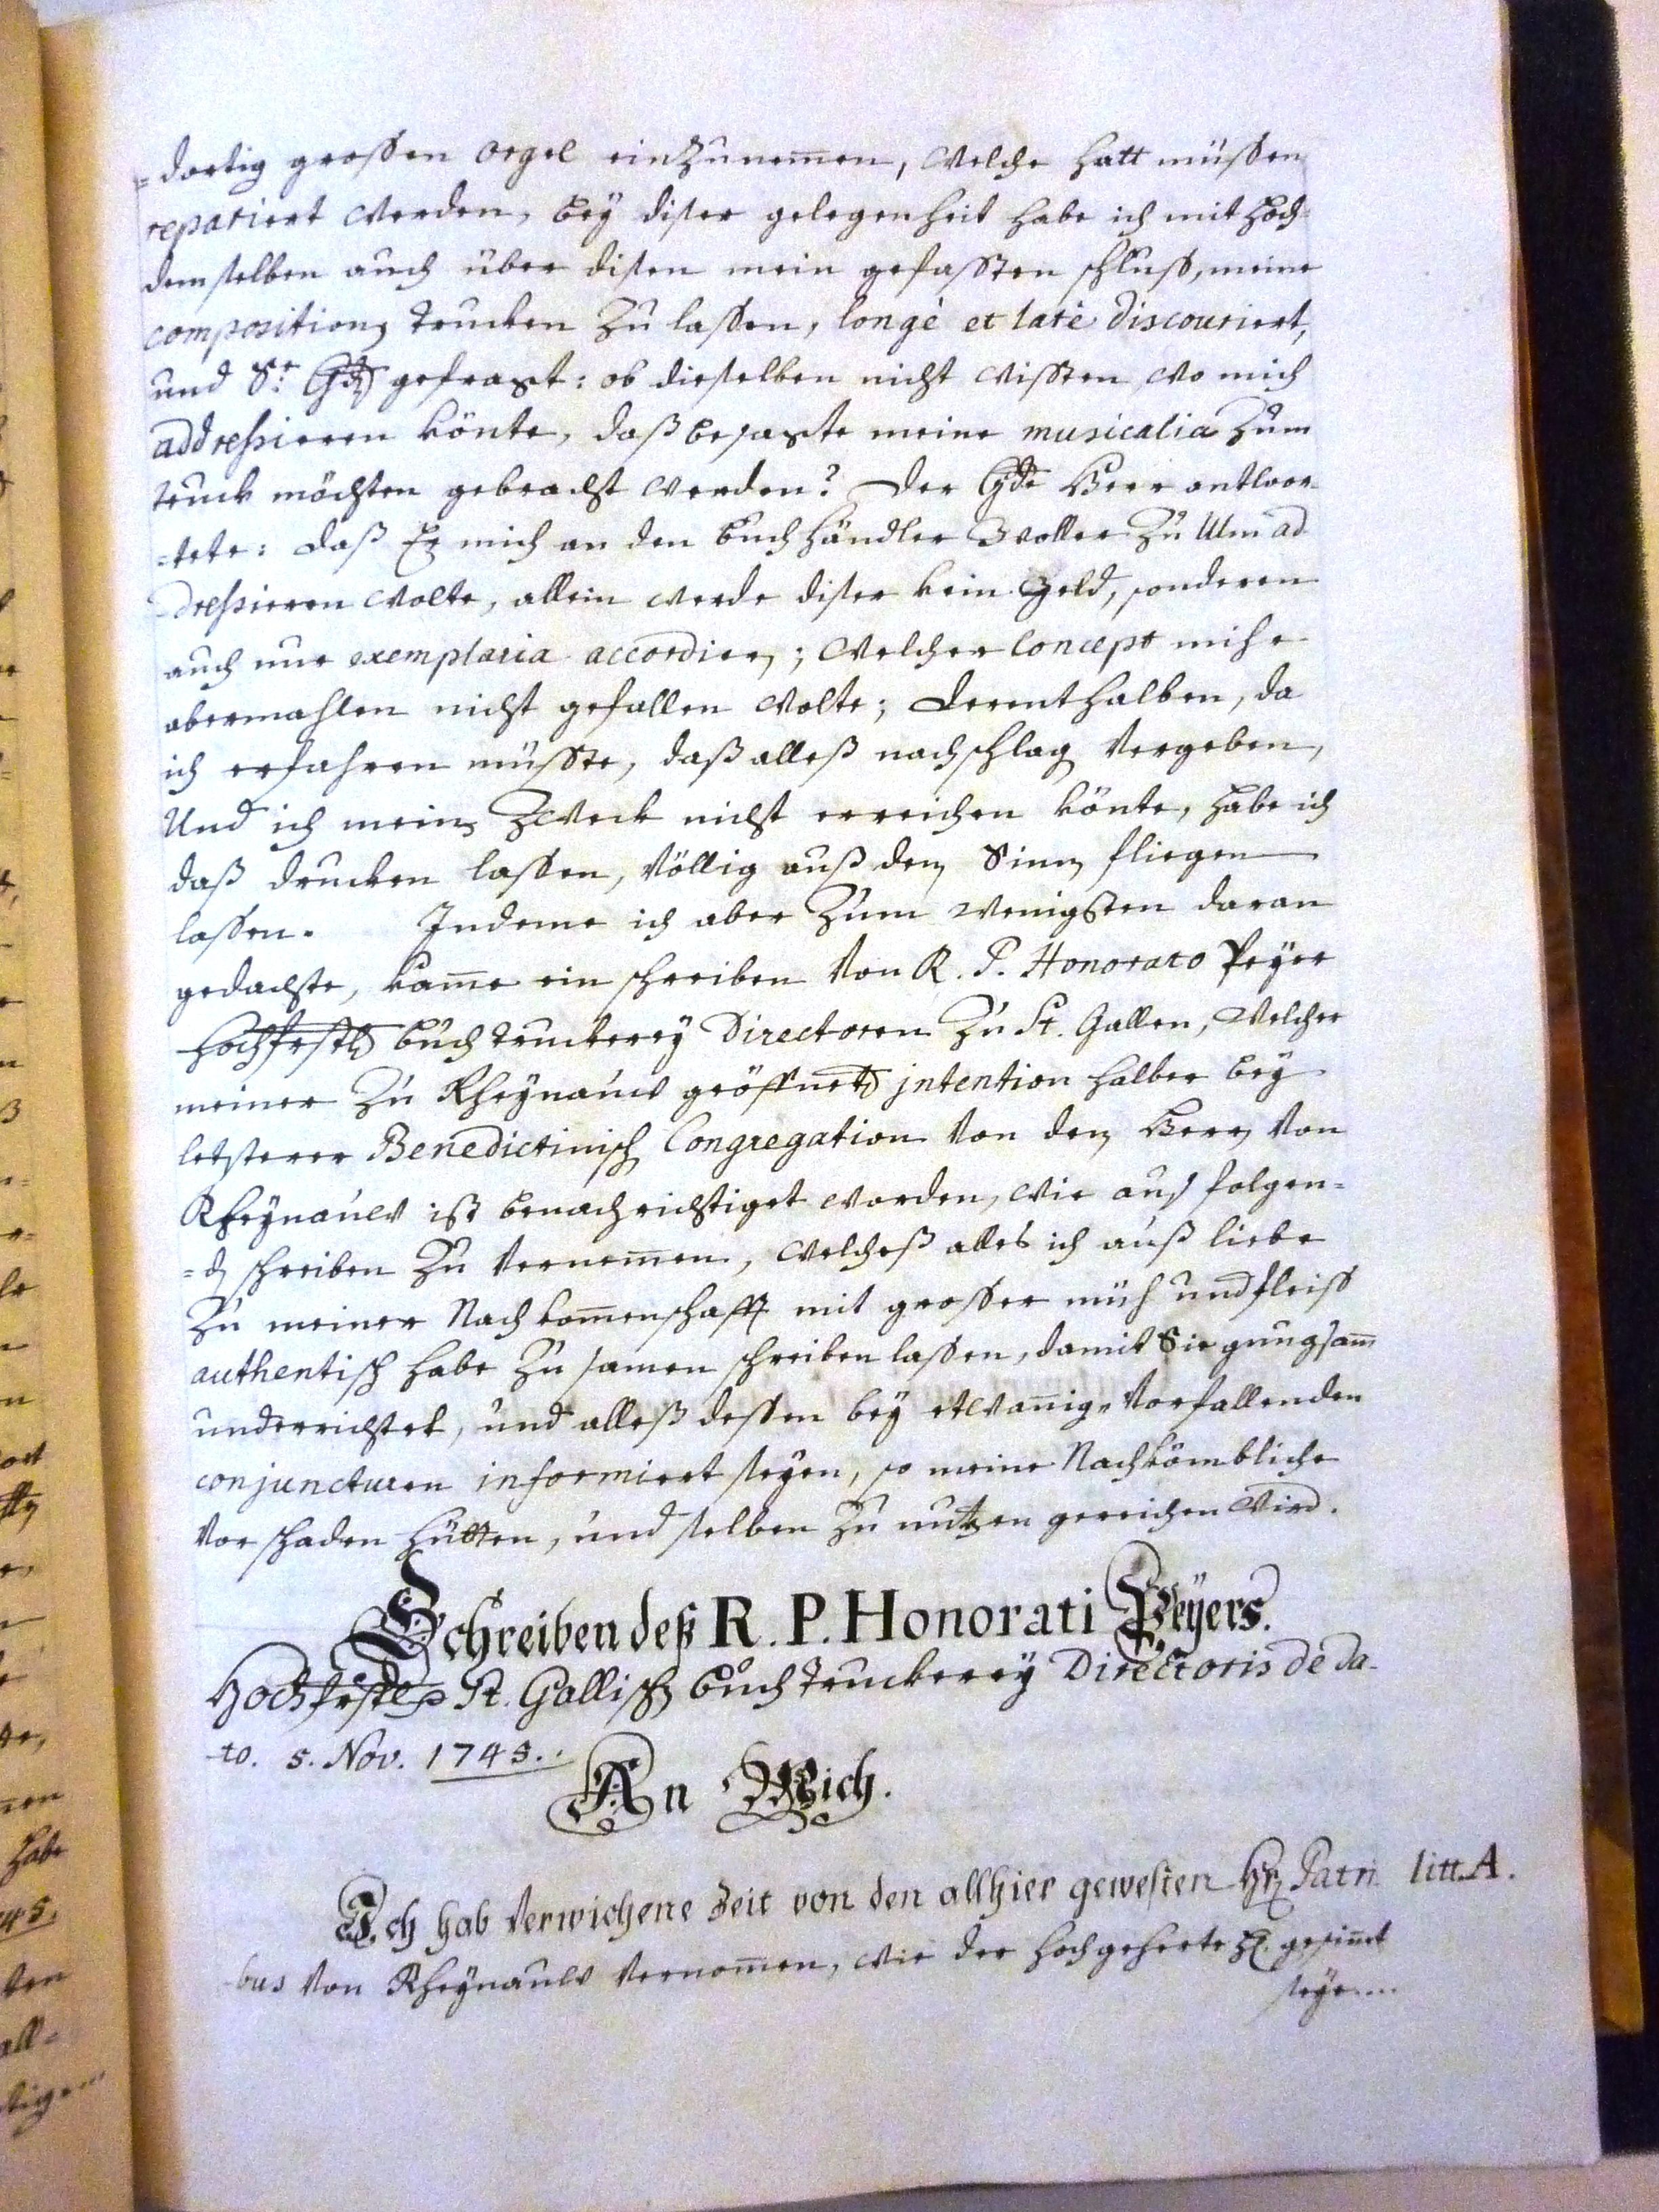 =dortig grossen orgel einzunem̄en, welche hatt müssen
repariert werden, bey diser gelegenheit habe ich mit hoch-
demselben auch über disen mein gefassten schluss, meine
composition trucken zu lassen, longè et latè discouriert,
und Sr. Gd gefragt: ob dieselben nicht wissten wo mich
addressieren könte, daß besagte meine musicalia zum
truck möchten gebracht werden? Der Gde Herr antwor-
-tete: daß Er mich an den buchhändler Woller zu Ulm ad
dressieren wolte, allein werde diser kein geld, sonderen
auch nur exemplaria accordier; welcher concept mihr
abermahlen nicht gefallen wolte; derenthalben, da
ich erfahren müsste, daß alleß nachschlag vergeben,
Und ich mein zweck nicht erreichen könte, habe ich
daß drucken lassen, völlig auß dem Sinn fliegen
lassen. Indeme ich aber zum wenigsten daran
gedachte, kam̄e ein schreiben von R. P. Honorato Peyer
hochfrstl buchtruckerey Directoren zu St. Gallen, welcher
meiner zu Rheynauw geöffnet intention halber bey
letsterer Benedictinisch Congregation von dem Herr von
Rheynauw ist benachrichtiget worden, wie auß folgen=
=d schreiben zu vernem̄en, welcheß alles ich auß liebe
zu meiner Nachkom̄enschafft mit grosser müh und fleiss
authentisch habe zusamen schreiben lassen, damit Sie gnugsam̄
underrichtet, und alleß dessen bey etwan̄ig vorfallenden
conjuncturen informiert seyen, so meine Nachkömbliche
vor schaden hütten, und selben zu nutzen gereichen wird.
Schreiben deß R. P. Honorati Peyers.
Hochfrstl St. Gallisch buchtruckerey Directoris de da-
to. 5. Nov. 1745.
An Mich.
Ich hab verwichene Zeit von den allhier gewesten Hr Patri litt. A.
-bus von Rheynauw vernom̄en, wie der hochgeherte H. gesin̄et
seye....